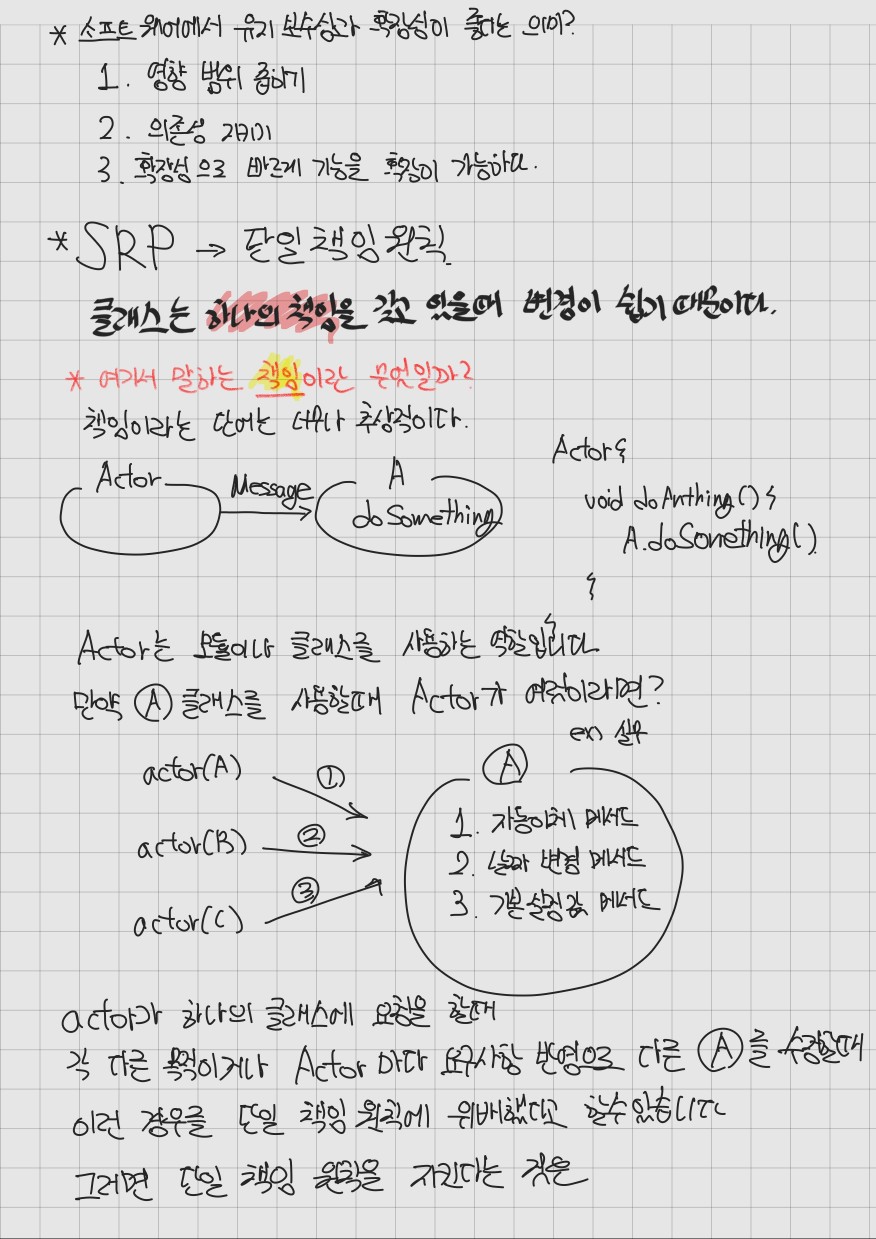 * 소프트웨어에서 유지 보수성과 확장성이 좋다는 의미?
1. 영향 범위 좁히기
2. 의존성 제거
3. 확장성으로 빠르게 기능을 확장이 가능하다.
* SRP → 단일 책임 원칙.
클래스는 하나의 책임을 갖고 있을때 변경이 쉽기 때문이다.
* 여기서 말하는 책임이란 무엇일까?
책임이라는 단어는 너무나 추상적이다.
Actor
Message
A
doSomething
Actor {
void doAnthing() {
A.doSomething()
}
}
Actor는 모듈이나 클래스를 사용하는 역할입니다
만약 A 클래스를 사용할때 Actor가 여럿이라면?
ex) 실무
actor(A) ①
actor(B) ②
actor(C) ③
A
1. 자동이체 메서드
2. 날짜 변경 메서드
3. 기본설정값 메서드
actor가 하나의 클래스에 요청을 할때
각 다른 목적이거나 Actor 마다 요구사항 반영으로 다른 A를 수정할때
이런 경우를 단일 책임 원칙에 위배했다고 할수있습니다
그러면 단일 책임 원칙을 지킨다는 것은